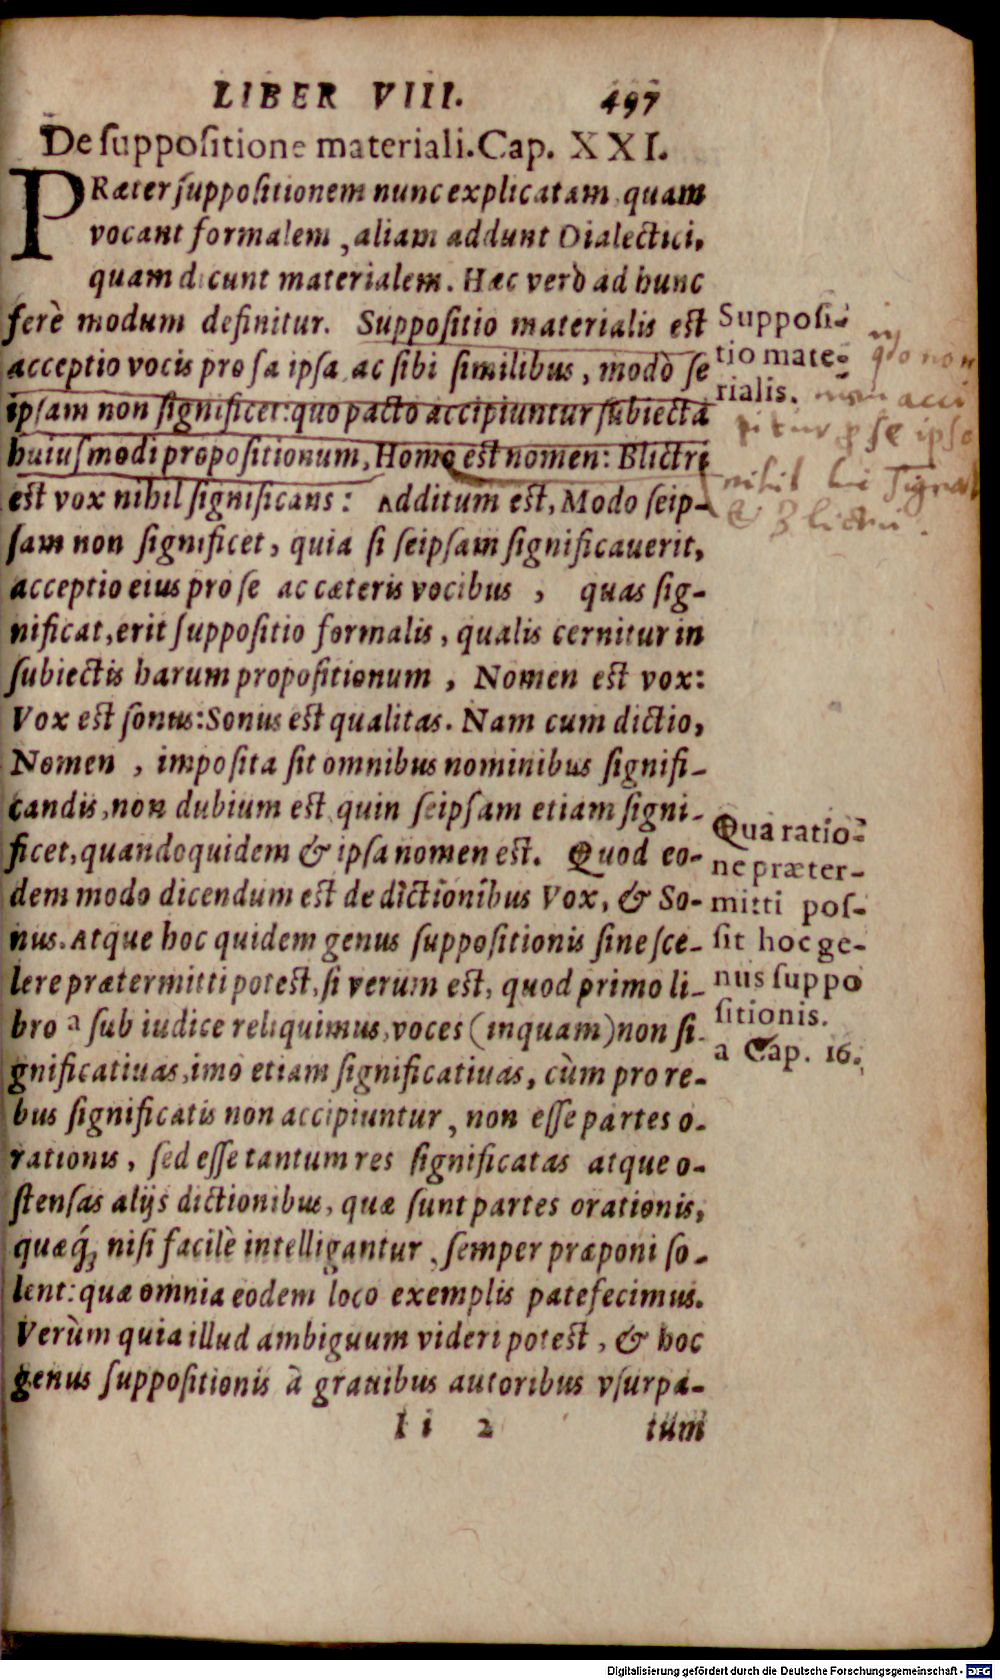 LIBER VIII. 497
De suppositione materiali. Cap. XXI.
PRæter suppositionem nunc explicatam, quam
vocant formalem, aliam addunt Dialectici,
quam dicunt materialem. Hæc verò ad hunc
ferè modum definitur. Suppositio materialis est
acceptio vocis pro sa ipsa, ac sibi similibus, modò se
ipsam non significet: quo pacto accipiuntur subiecta
huiusmodi propositionum, Homo est nomen: Blictri
est vox nihil significans: Additum est, Modo seip-
sam non significet, quia si seipsam significauerit,
acceptio eius pro se ac cæteris vocibus, quas sig-
nificat, erit suppositio formalis, qualis cernitur in
subiectis harum propositionum, Nomen est vox:
Vox est sonus: Sonus est qualitas. Nam cum dictio,
Nomen, imposita sit omnibus nominibus signifi-
candis, non dubium est, quin seipsam etiam signi-
ficet, quandoquidem & ipsa nomen est. Quod eo-
dem modo dicendum est de dictionibus Vox, & So-
nus. Atque hoc quidem genus suppositionis sine sce-
lere prætermitti potest, si verum est, quod primo li-
bro a sub iudice reliquimus, voces (inquam) non si-
gnificatiuas, imo etiam significatiuas, cùm pro re-
bus significatis non accipiuntur, non esse partes o-
rationis, sed esse tantum res significatas atque o-
stensas alijs dictionibus, quæ sunt partes orationis,
quæq́; nisi facilè intelligantur, semper præponi so-
lent: quæ omnia eodem loco exemplis patefecimus.
Verùm quia illud ambiguum videri potest, & hoc
genus suppositionis à grauibus autoribus vsurpa-
Ii 2 tum
Supposi-
tio mate-
rialis.
non
acci
pitur p se ipso
nihil
& blictri.
Qua ratio-
ne præter-
mitti pos-
sit hoc ge-
nus suppo
sitionis.
a Cap. 16.
Digitalisierung gefördert durch die Deutsche Forschungsgemeinschaft - DFG